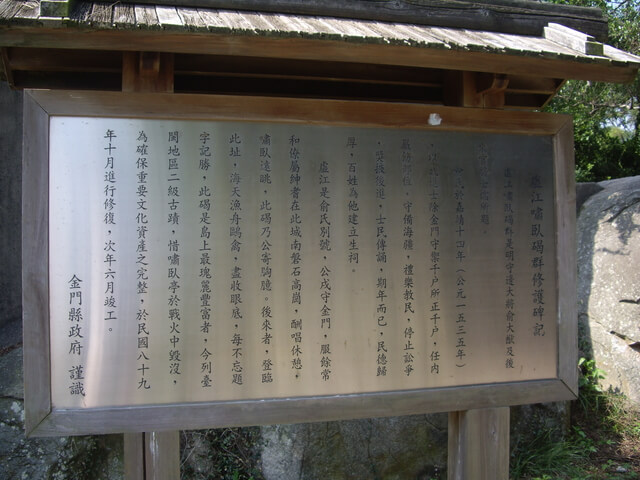 虛江嘯臥碣群修護碑記
虛江嘯臥碣群是明守邊大將俞大猷及後
嘉靖十四年(公元一五三五年)
金門守禦千戶所正千戶,任內
守備海疆,禮樂教民,停止訟爭
士民傳誦,期年而已,民德歸
厚,百姓為他建立生祠。
虛江是俞氏別號,公戍守金門,服餘常
和僚屬紳耆在此城南磐石高崗,酬唱休憩,
嘯臥遠眺,此碣乃公寄胸臆。後來者,登臨
此址,海天漁舟鷗禽,盡收眼底,每不忘題
字記勝,此碣是島上最瑰麗豐富者,今列臺
閩地區二級古蹟,惜嘯臥亭於戰火中毀沒,
為確保重要文化資產之完整,於民國八十九
年十月進行修復,次年六月竣工。
金門縣政府 謹識